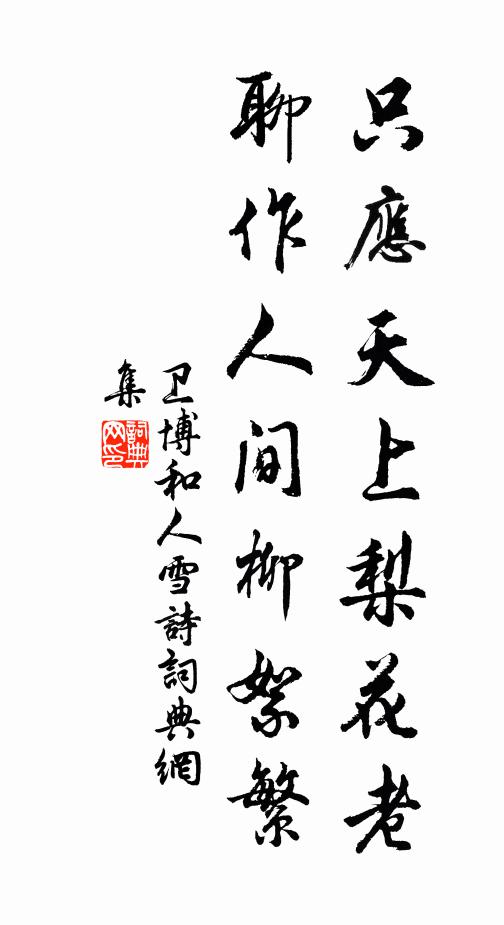 只應天上梨花老
聊作人間柳絮繁
卫博和人雪詩詞典網
集
詞典網印